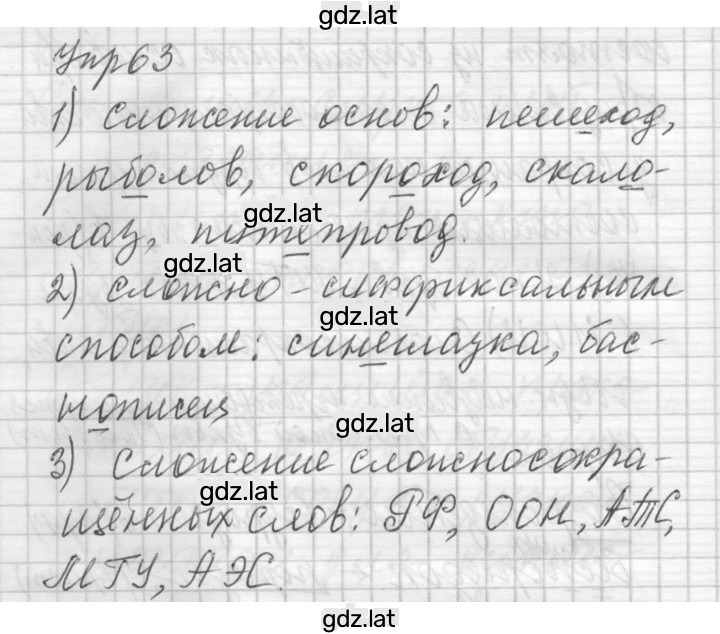 gdz.lat
Упр63
1) сложение основ: пешеход,
рыболов, скороход, скало-
gdz.lat
лаз, путепровод.
gdz.lat
2) сложно-суффиксальным
gdz.lat
способом: синеглазка, бас-
нописец
gdz.lat
3) Сложение сложносокра-
gdz.lat
щённых слов: РФ, ООН, АТС,
МГУ, АЭС.
gdz.lat